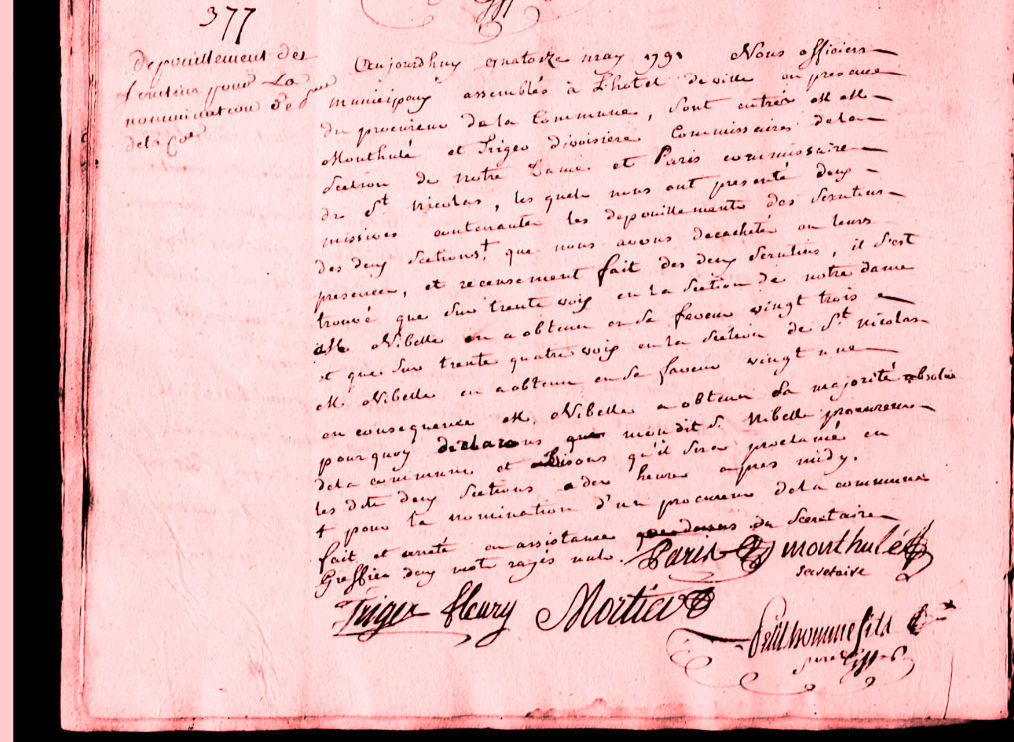 377
depouillement des
scrutins pour La
nomination de pror
de la Coe
Aujourdhuy quatorze may 1791 Nous officiers
municipaux assemblés à L'hotel de ville en presence
du procureur de la Commune, sont entrés M M
Monthulé et Triger divoisiere Commissaires de la
Section de notre Dame et Paris commissaire
de St nicolas, les quels nous ont presenté deux
missives contenantes les depouillements des scrutins
des deux Sections, † que nous avons decacheté en leurs
presence, et recensement fait des deux Scrutins, il s'est
trouvé que sur trente voix en la Section de notre dame
M. Nibelle en a obtenu en sa faveur vingt trois
et que sur trente quatre voix en la Section de St nicolas
M. Nibelle en a obtenu en sa faveur vingt une
en consequence M. Nibelle a obtenu La majorité absolue
pourquoy declarons que mon dit S. Nibelle procureur
de la commune et disons qu'il sera proclamé en
les dite deux Sections a deux heure apres midy.
† pour la nomination d'un procureur de la commune
fait et arreté en assistance du Secretaire
Greffier deux mots rayés nuls. Paris monthulé
Secretaire
Triger fleury Mortier
Petithomme fils